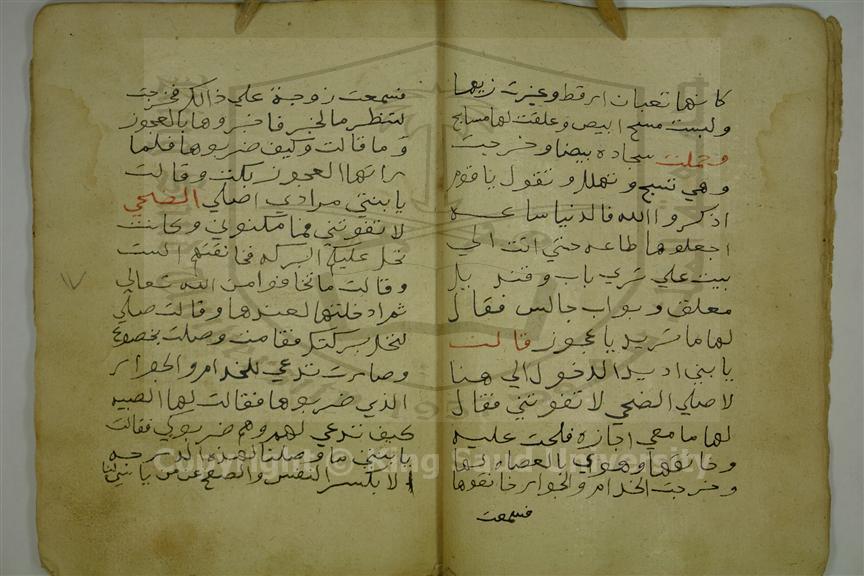 كانها تعبان ارقط وغيرت زيها
ولبست مسح ابيض وعلقت لها مسابح
وحملت سجاده بيضا وخرجت
وهي تسبح وتهلل وتقول ياقوم
اذكروا الله فالدنيا ساعه
اجعلوها طاعه حتي اتت الي
بيت علي سري باب وقنديل
معلق وبواب جالس فقال
لها ما تريد يا عجوز قالت
يا بني اريد الدخول الي هنا
لاصلي الضحي لا تفوتني فقال
لها ما معي اجازه فلحت عليه
وخانقها وهوي بالعصاه لها
وخرجت الخدام والجوار خانقوها
فسمعت
فسمعت زوجة علي ذالك فخرجت
لتنظر ما الخبر فاخبروها بالعجوز
وما قالت وكيف ضربوها فلما
راتها العجوز بكت وقالت
يا بنتي مرادي اصلي الضحي
لا تفوتني فما مكنوني وكانت
تحل عليكم البركه فخانقتهم الست
وقالت ما تخافوا من الله تعالي
ثم ادخلتها لعندها وقالت صلي
لتحل بركتك فقامت وصلت بخضوع
وصارت تدعي للخدام والجوار
الذي ضربوها فقالت لها الصبيه
كيف تدعي لهم وهم ضربوكي فقالت
يا بنتي ما وصلنا لهذه الدرجه
الا بكسر النفس والصفح عن من ياسي لنا
Copyright © King Saud University